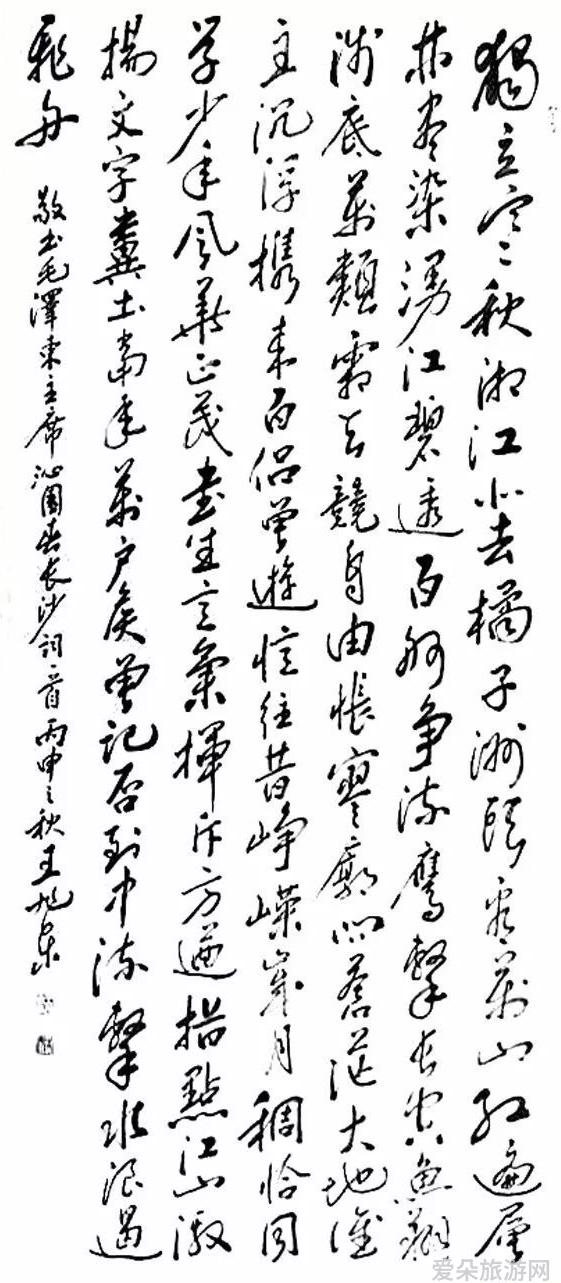 獨立寒秋湘江北去橘子洲頭看萬山紅遍層
林盡染漫江碧透百舸爭流鷹擊長空魚翔
淺底萬類霜天競自由悵寥廓問蒼茫大地誰
主沉浮攜來百侶曾遊憶往昔崢嶸歲月稠恰同
學少年風華正茂書生意氣揮斥方遒指點江山激
揚文字糞土當年萬戶侯曾記否到中流擊水浪遏
飛舟
敬书毛澤東主席沁園春長沙詞一首丙申之秋王旭
爱朵旅游网